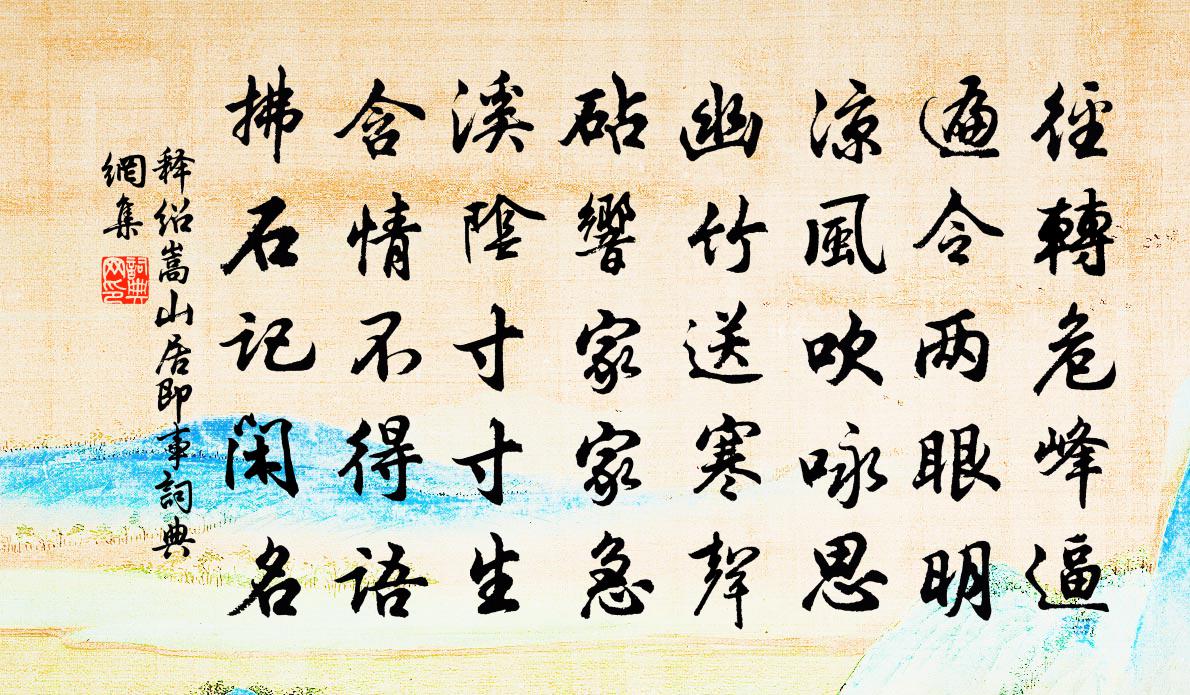 徑轉危峰逼
遍令两眼明
涼風吹咏思
幽竹送寒聲
砧響家家急
溪陰寸寸生
含情不得語
拂石記閑名
释绍嵩山居即事詞典
網集
詞典
网印